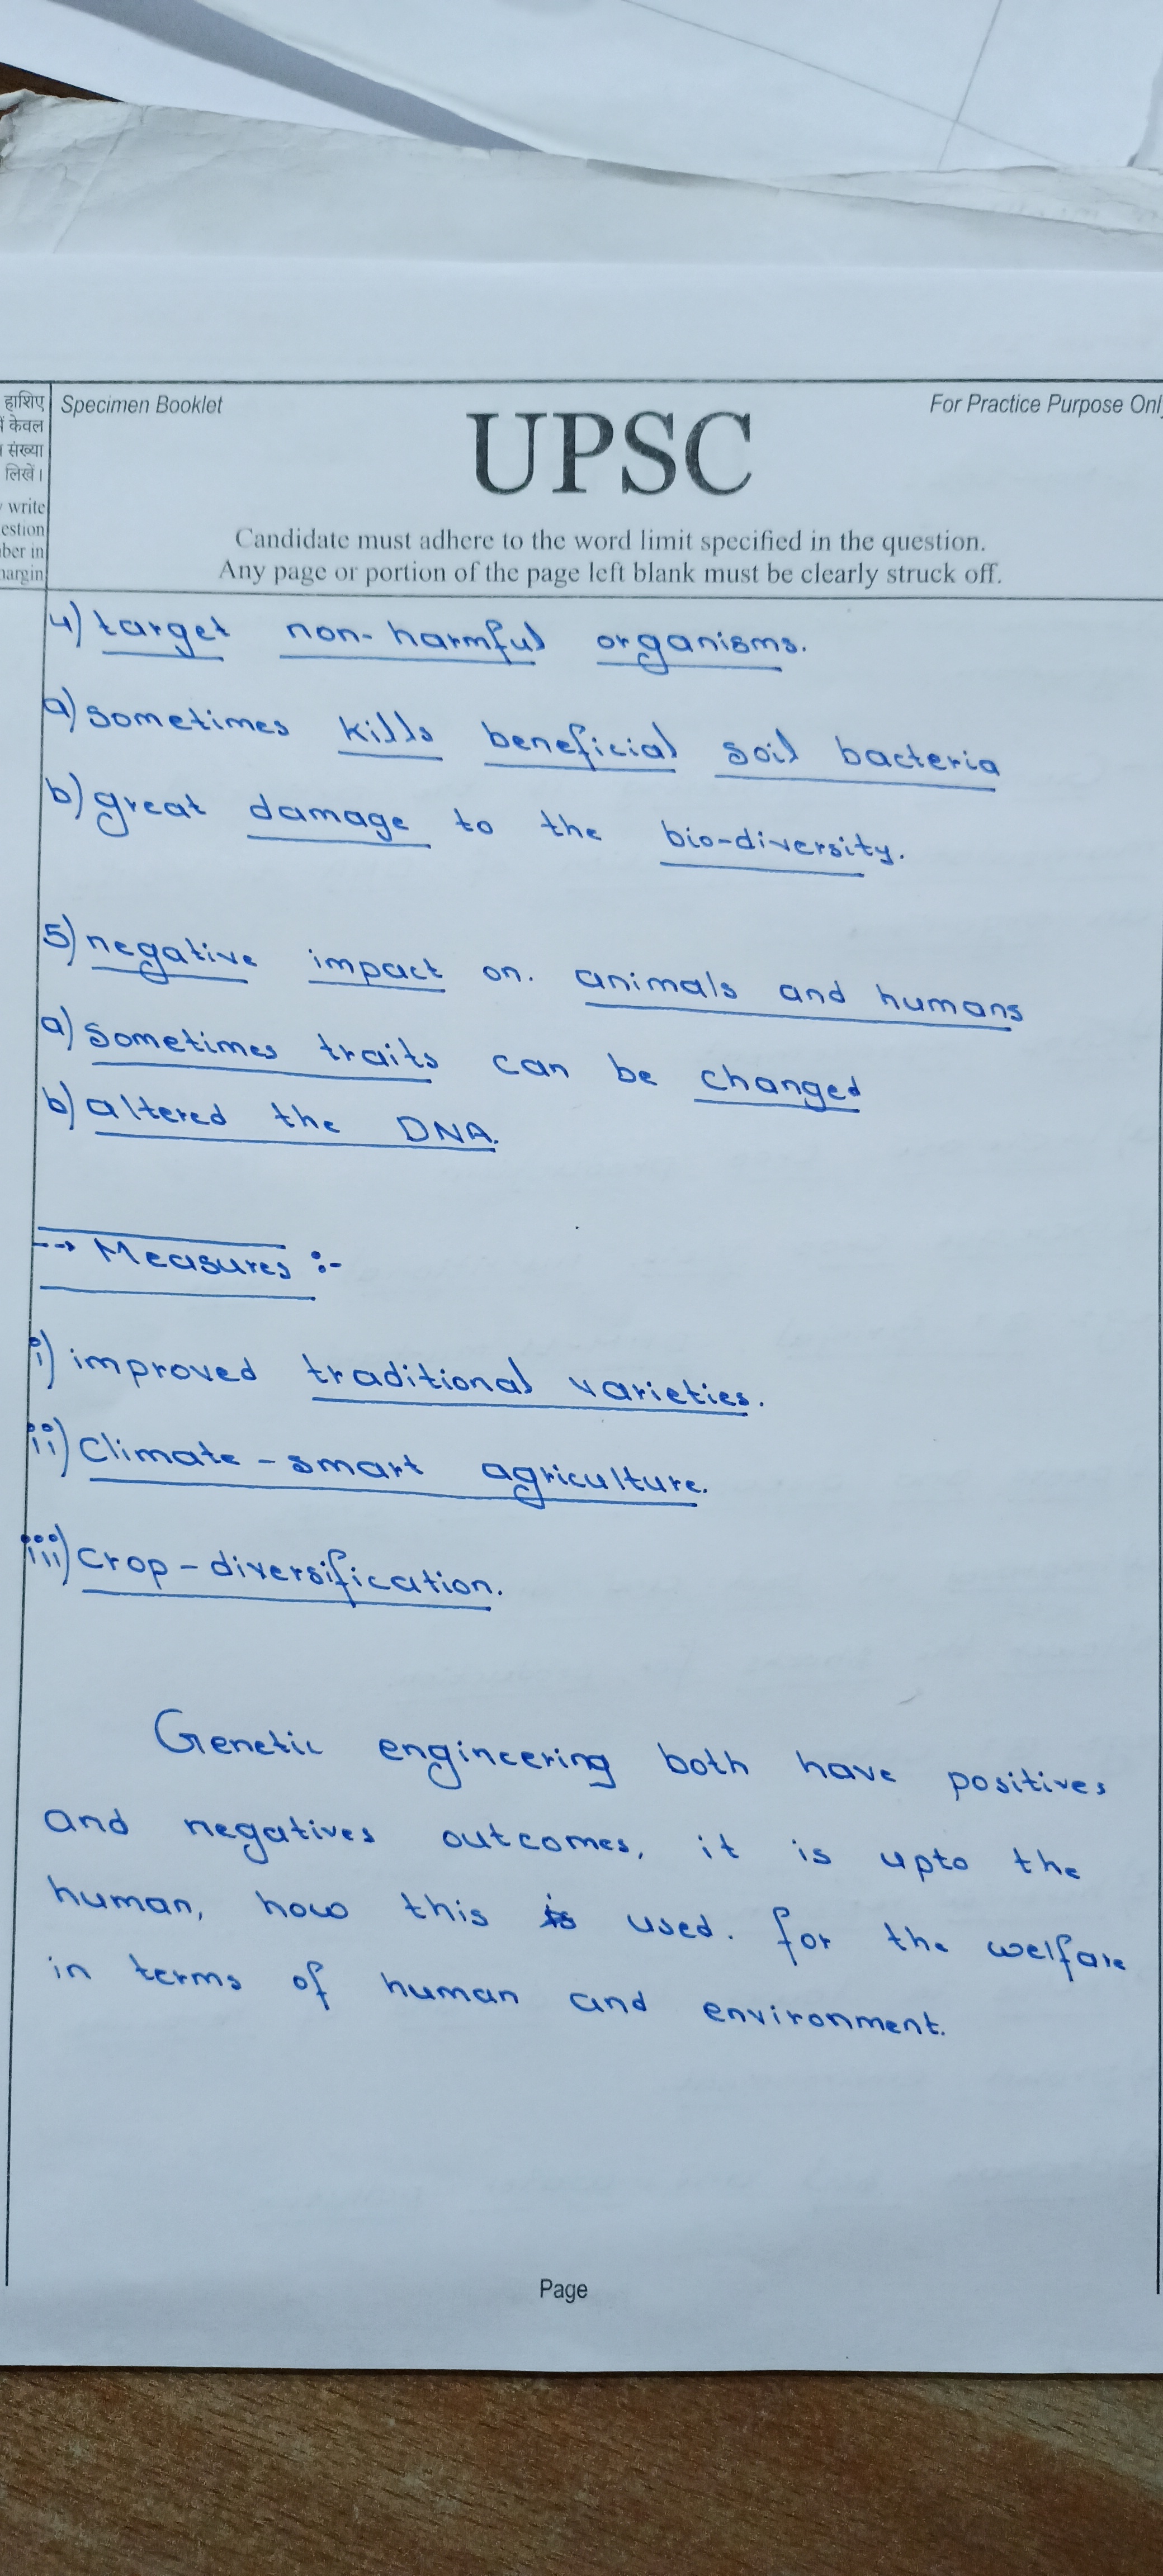 हाशिए
में केवल
संख्या
लिखें।
write
estion
ber in
margin
Specimen Booklet
For Practice Purpose Onl
UPSC
Candidate must adhere to the word limit specified in the question.
Any page or portion of the page left blank must be clearly struck off.
4) target non-harmful organisms.
a) sometimes kills beneficial soil bacteria
b) great damage to the bio-diversity.
5) negative impact on. animals and humans
a) sometimes traits can be changed
b) altered the DNA.
--> Measures :-
i) improved traditional varieties.
ii) Climate-smart agriculture.
iii) crop-diversification.
Genetic engineering both have positives
and negatives outcomes, it is upto the
human, how this is used. for the welfare
in terms of human and environment.
Page